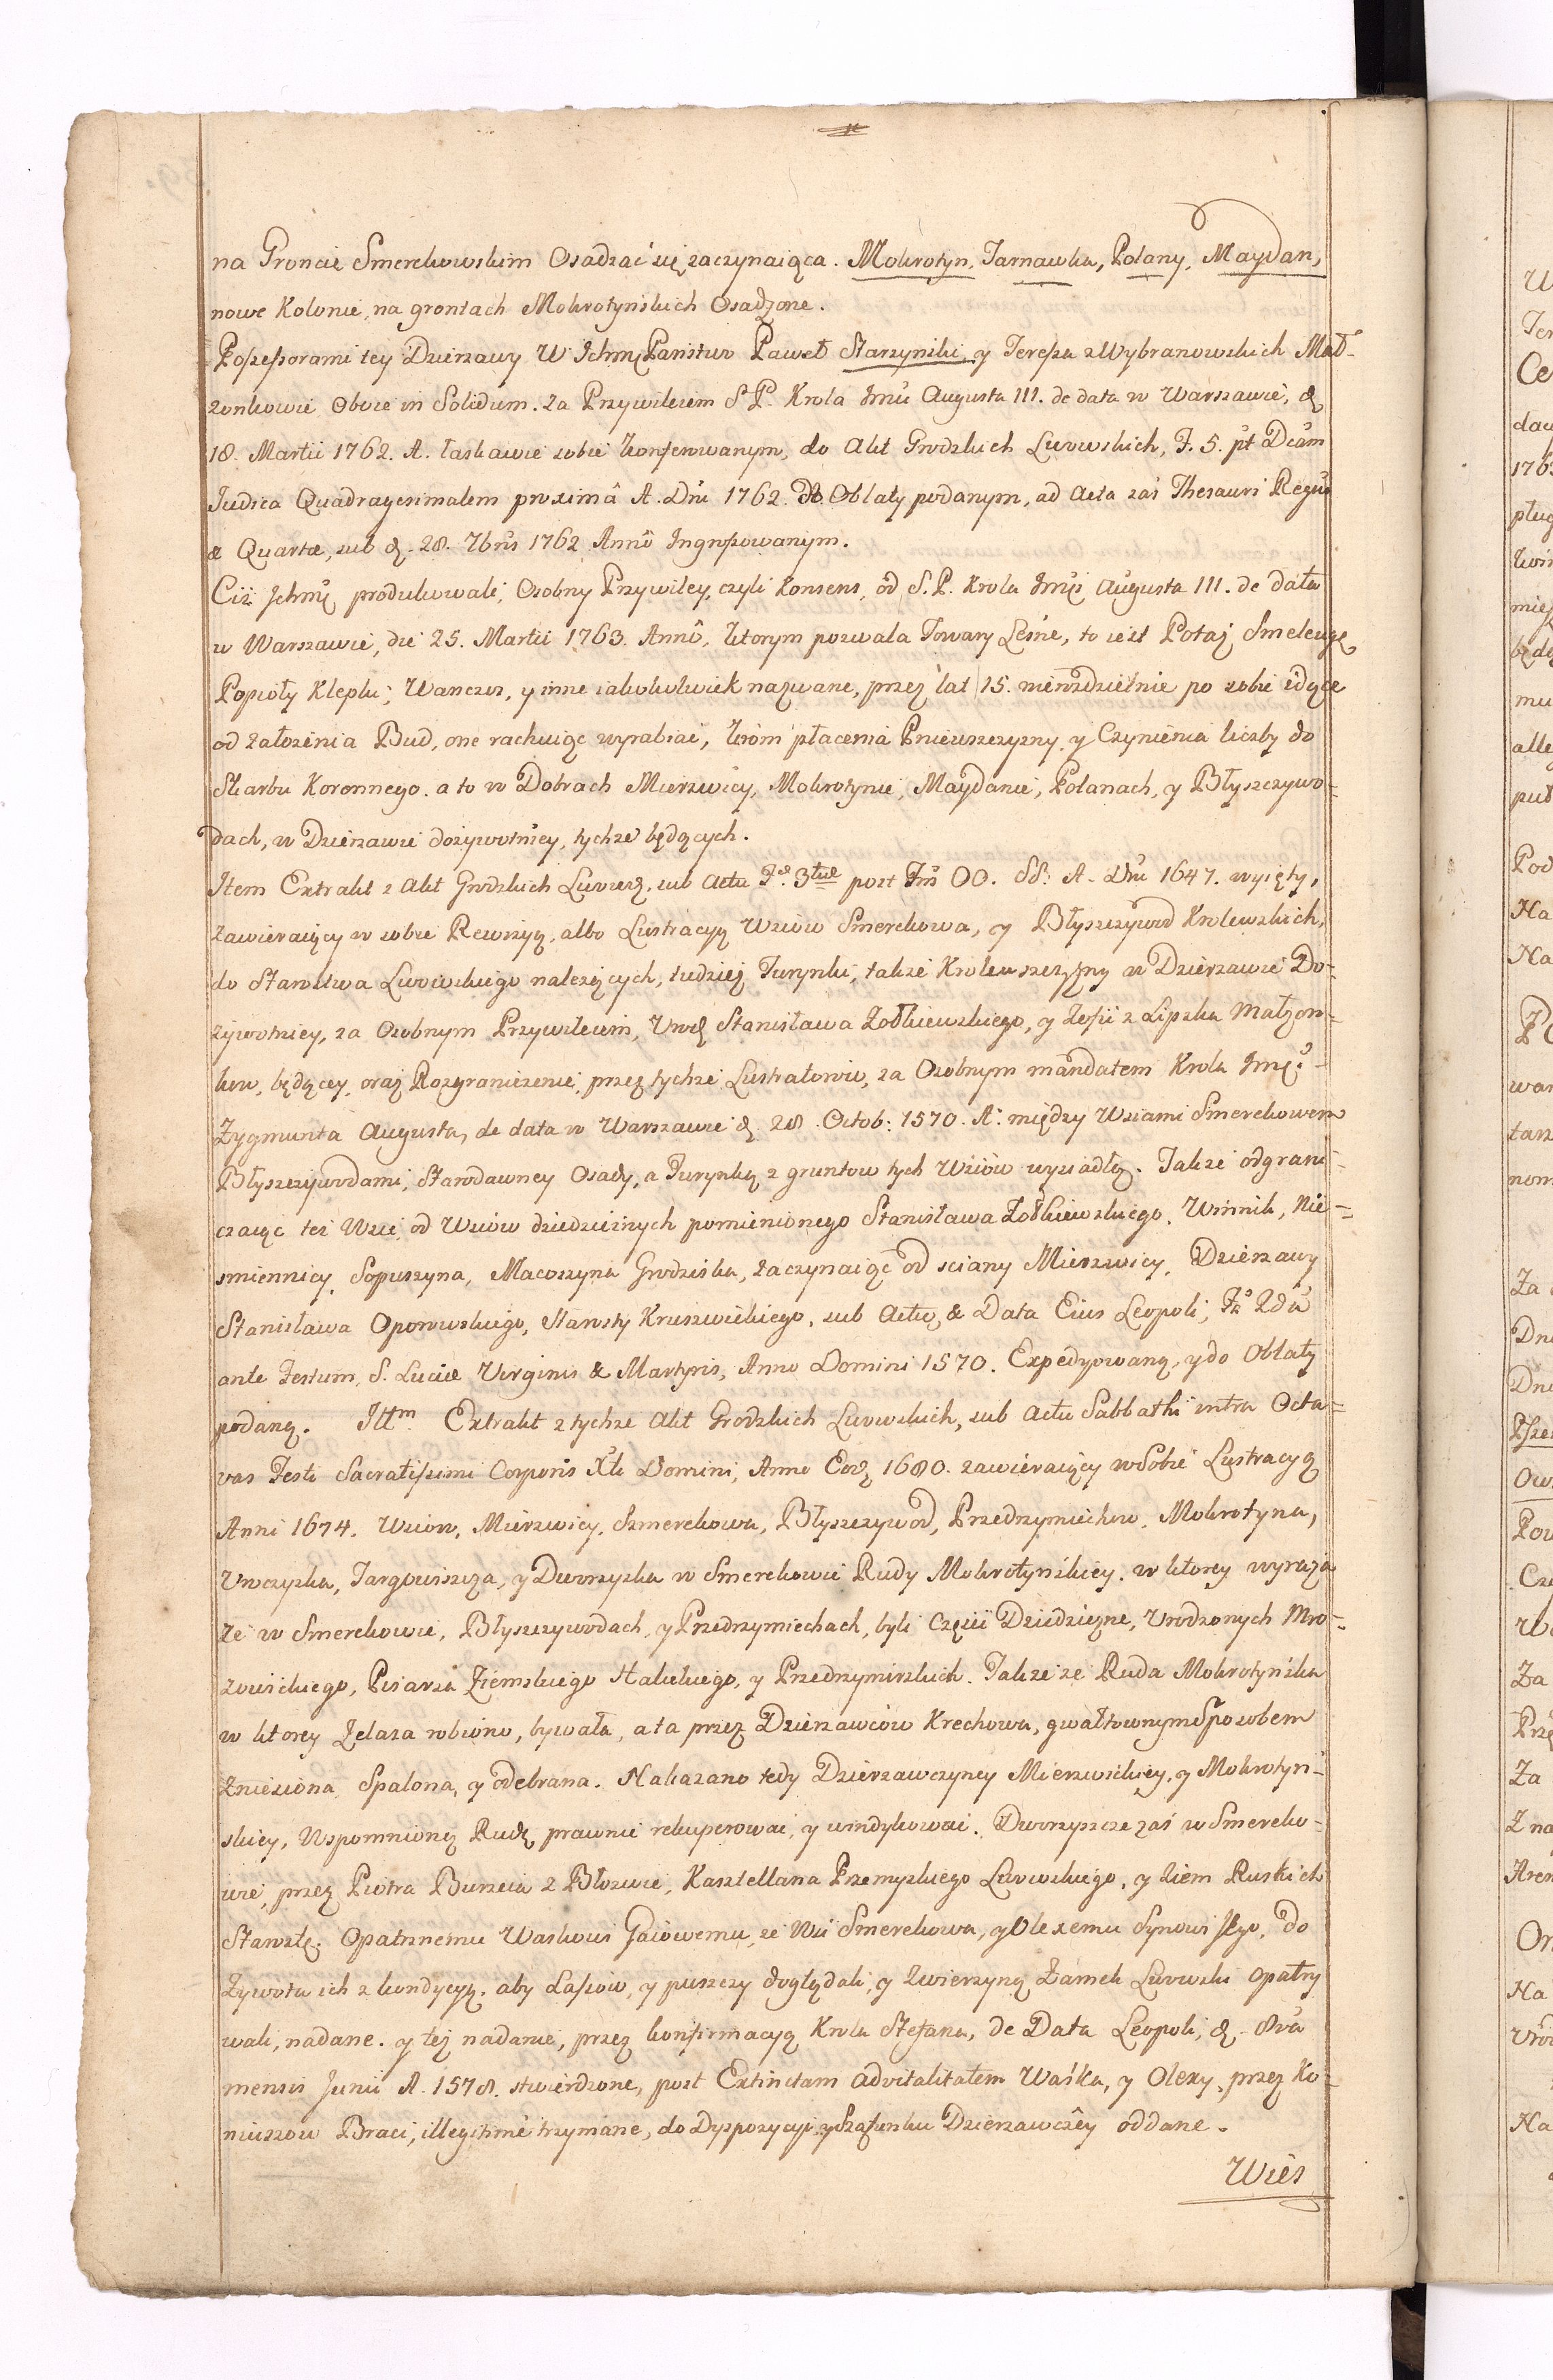 na Groncie Smerekowskim Osadzać się zaczynaiąca. Mokrotyn, Tarnawka, Polany, Maydan,
nowe Kolonie, na grontach Mokrotyńskich Osadzone.
Possessorami tey Dzierzawy W Ichmę Państwo Paweł Starzynski, y Teressa z Wybranowskich Mał-
zonkowie Oboie in Solidum. Za Przywileiem S. P. Krola Jmci Augusta III. de data w Warszawie, d
18. Martii 1762. A. łaskawie sobie konferowanym, do Akt Grodzkich Lwowskich, F. 5. pt Dcam
Judica Quadragesimalem proximâ A. Dni 1762. do Oblaty podanym, ad Acta zaś Thesauri Regni
& Quartæ, sub d. 28. 7bris 1762 Annô Ingrossowanym.
Ciż Jchmę produkowali, Osobny Przywiley, czyli Konsens, od S. P. Krola Jmci Augusta III. de data
w Warszawie, die 25. Martii 1763. Annô, ktorym pozwala Towary Leśne, to iest Potaż Smelcugę
Popioły Klepki, Wanczos, y inne iakokolwiek nazwane, przez lat 15. nierozdzielnie po sobie idące
od założenia Bud, one rachuiąc wyrabiać, króm płacenia Pniewszczyzny, y Czynienia liczby do
Skarbu Koronnego. a to w Dobrach Mierzwicy, Mokrotynie, Maydanie, Polanach, y Błyszczywo-
dach, w Dzierzawie dożywotniey, tychże będących.
Item Extrakt z Akt Grodzkich Lwow, sub Actu post Fm OO. SS: A. Dni 1647. wyięty,
zawieraiący w sobie Rewizyą, albo Lustracyą Wsiów Smerekowa, y Błyszczywod Krolewskich,
do Starostwa Lwowskiego nalezących, tudziez Turynki, także Krolewszczyzny w Dzierzawie Do-
żywotniey, za Osobnym Przywileiem, Urod Stanisława Żołkiewskiego, y Zofii z Lipska Małżon-
kow, będącey, oraz Rozgraniczenie, przez tychże Lustratorow, za Osobnym mandatem Krola Jmci
Zygmunta Augusta, de data w Warszawie d. 28. Octob: 1570. A. między Wsiami Smerekowem
Błyszczywodami, Starodawney Osady, a Turynką z gruntow tych Wsiów wysiadłą. Także odgrani-
czaiąc też Wsie, od Wsiów dziedzicznych pomienionego Stanisława Żołkiewskiego, Winnik, Nie-
smiennicy, Sopuszyna, Macoszyna Grodziska, zaczynaiąc od sciany Mierzwicy, Dzierzawy
Stanisława Oporowskiego, Starosty Kruszwickiego, sub Actu, & Data Eius Leopoli, Fa 2da
ante Festum, S. Luciæ Virginis & Martyris, Anno Domini 1570. Expedyowaną, y do Oblaty
podaną. Ittm Extrakt z tychże Akt Grodzkich Lwowskich, sub Actu Sabbathi intra Octa-
vas Festi Sacratissimi Corporis Xti Domini, Anno Eod 1680. zawieraiący w Sobie Lustracyą
Anni 1674. Wsiow, Mierzwicy, Smerekowa, Błyszczywod, Przedrzymiechow, Mokrotyna,
Uroczyska, Targowiszcza, y Dworzyska w Smerekowie Rudy Mokrotyńskiey, w ktorey wyraża
że w Smerekowie, Błyszczywodach, y Przedrzymiechach, byli Częsci Dziedziczne, Urodzonych Mro-
zowickiego, Pisarza Ziemskiego Halickiego, y Przedrzymirskich. Także że Ruda Mokrotyńska
w ktorey Żelaza robiono, bywała, a ta przez Dzierzawców Krechowa, gwałtownym Sposobem
Zniesiona, Spalona, y odebrana. Nakazano tedy Dzierzawczyney Mierzwickiey, y Mokrotyń-
skiey, Wspomnioną Rudę prawnie rekuperować, y windykować. Dworzyszcze zaś w Smereko-
wie, przez Piotra Burzeia z Błozwie, Kasztellana Przemyskiego Lwowskiego, y Ziem Ruskich
Starostę. Opatrznemu Waskowi Gaiowemu, ze Wsi Smerekowa, y Olexemu Synowi Jego, do
Żywota ich z kondycyą, aby Lassów, y puszczy doględali, y Zwierzyną Zamek Lwowski opatry
wali, nadane. y też nadanie, przez konfirmacyą Krola Stefana, de Data Leopoli, d. 8va
mensis Junii A. 1578. stwierdzone, post Extinctam advitalitatem Waśka, y Olexy, przez Ko-
niuszow Braci, illegitimè trzymane, do Dyspozycyi y Szafunku Dzierzawcżey oddane.
Wieś